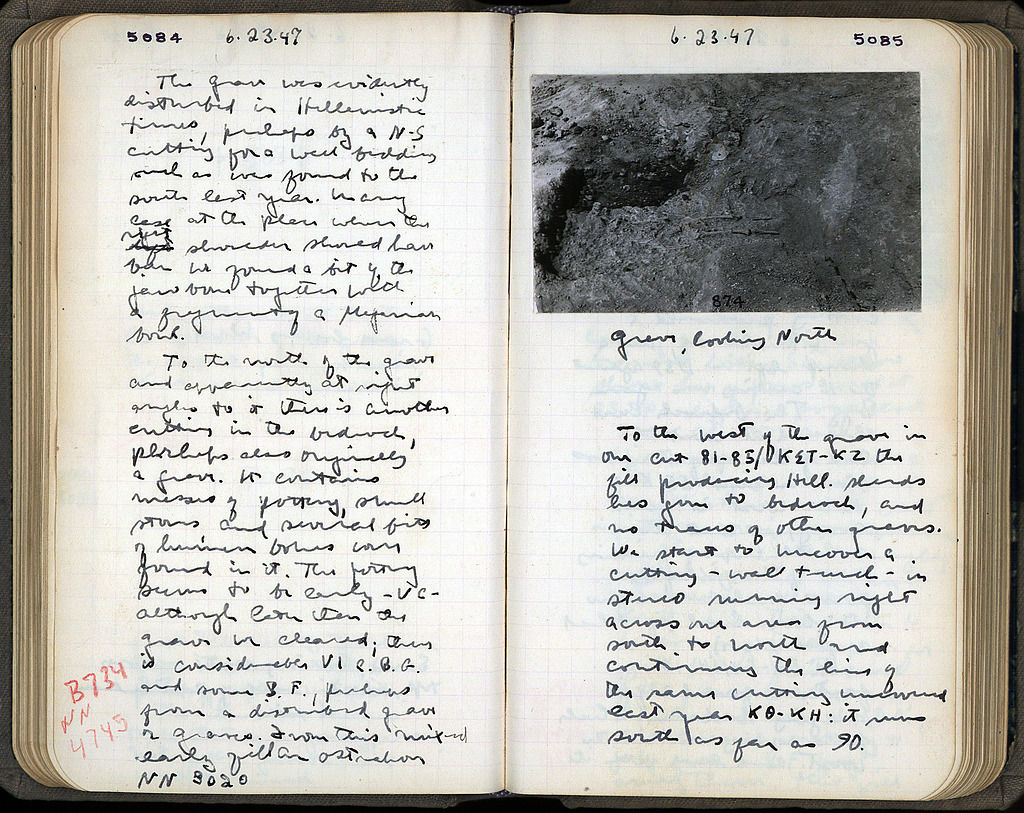 5084 6.23.47
The grave was evidently
disturbed in Hellenistic
times, perhaps by a N-S
cutting for a wall bedding
such as was found to the
south last year. In any
case at the place where the
right shoulder should have
been we found a bit of the
jaw bone together with
a fragment of a Megarian
bowl.
To the north of the grave
and apparently at right
angles to it there is another
cutting in the bedrock,
perhaps also originally
a grave. It contains
masses of pottery, small
stones and several bits
of human bones were
found in it. The pottery
seems to be early - VC -
although later than the
grave we cleared; there
is considerable VI c. B.G.
and some B.F., perhaps
from a disturbed grave
or graves. From this mixed
early fill an ostrakon
NN 3020
B734
NN
4745
6.23.47 5085
874
Grave, looking North
To the west of the grave in
our cut 81-83/ΚΣΤ-ΚΖ the
fill producing Hell. sherds
has gone to bedrock, and
no traces of other graves.
We start to uncover a
cutting - wall trench - in
stereo running right
across our area from
south to north and
continuing the line of
the same cutting uncovered
last year ΚΘ-ΚΗ: it runs
south as far as 90.